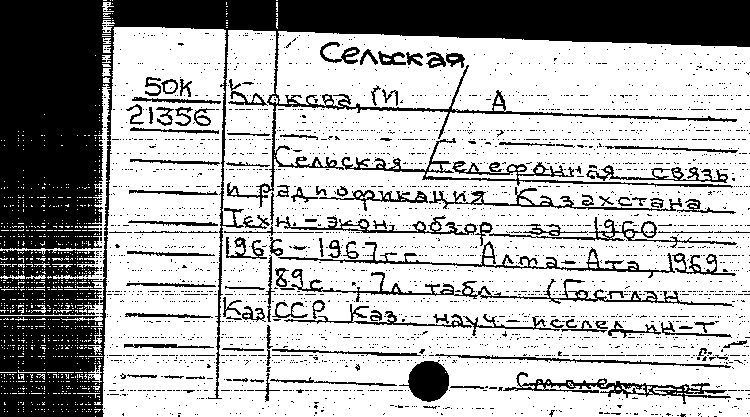 Сельская
50К
21356
Клокова, М. А
Сельская телефонная связь
и радиофикация Казахстана.
Техн.-экон. обзор за 1960,
1966-1967 гг. Алма-Ата, 1969.
89 с.; 7 л. табл. (Госплан
КазССР, Каз. науч.-исслед. ин-т
См. след. карт.